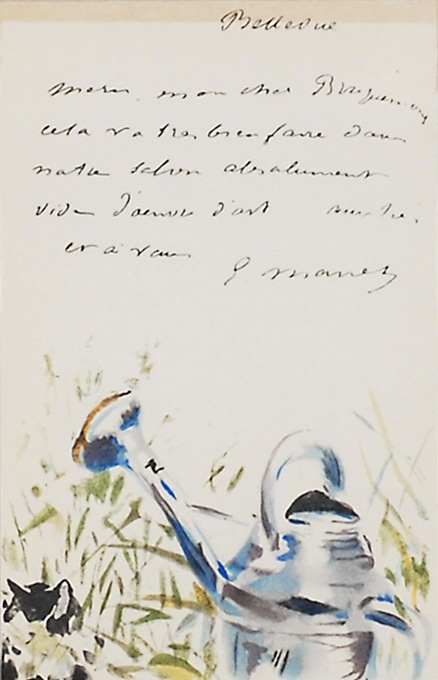 Bellevue
merci, mon cher Bracquemond
cela va très bien faire dans
notre salon absolument
vide d'œuvre d'art
et à vous
E Manet